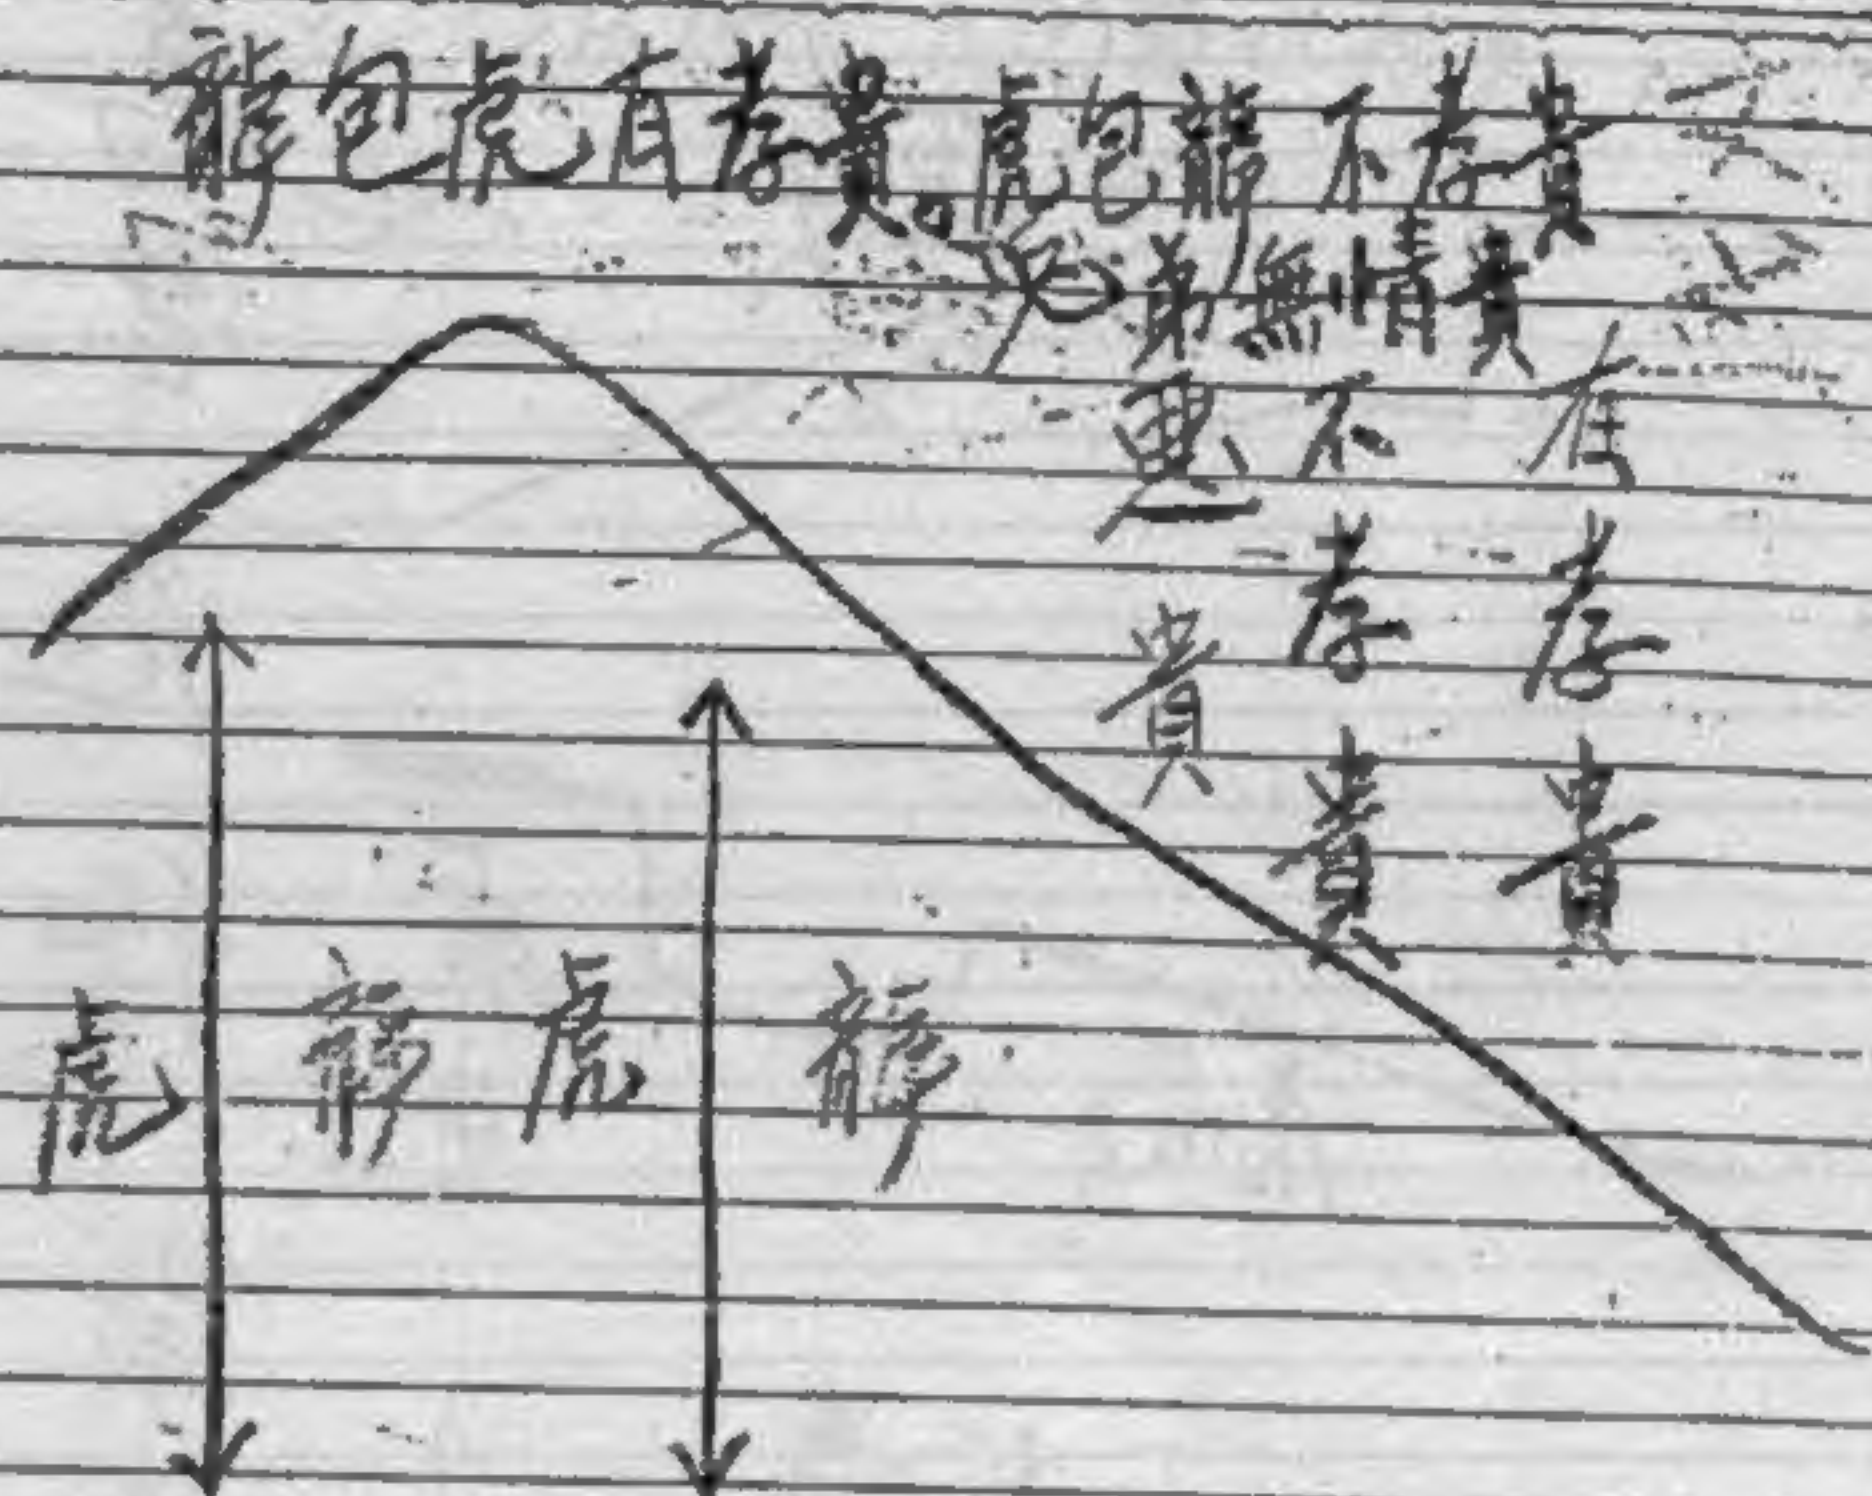 龍包虎有孝貴。虎包龍不孝貴
兄弟無情貴
有孝貴
不孝貴
貴
虎 龍 虎 龍